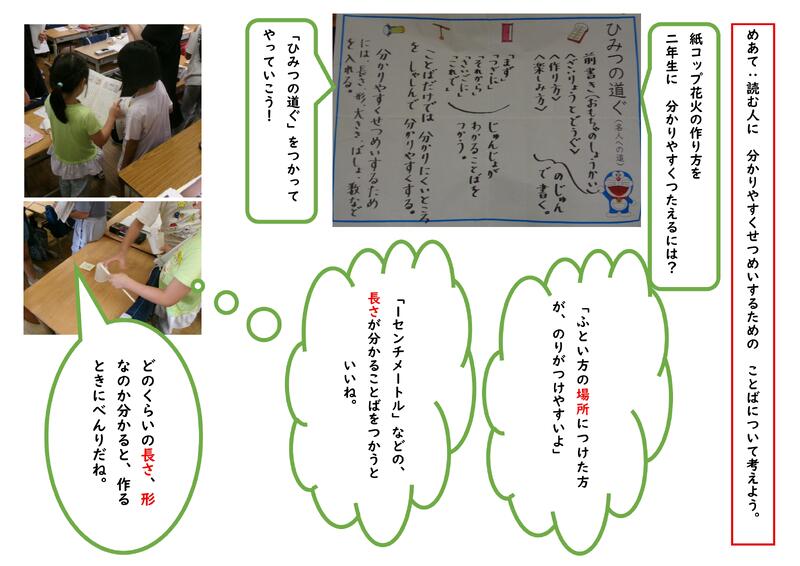 めあて：読む人に　分かりやすくせつめいするための　ことばについて考えよう。
紙コップ花火の作り方を
二年生に　分かりやすくつたえるには？
ひみつの道ぐ（名人への道）
前書き〈おもちゃのしょうかい〉
〈ざいりょうとどうぐ〉
〈作り方〉
〈楽しみ方〉
のじゅん
で書く。
「まず」
「つぎに」
「それから」
「さいごに」
「これで」
じゅんじょが
わかることばを
つかう。
ことばだけでは 分かりにくいところ
を しゃしんで 分かりやすくする。
分かりやすくせつめいするため
には、長さ、形、大きさ、ばしょ、数など
を入れる。
「ひみつの道ぐ」をつかって
やっていこう！
「ふとい方の場所につけた方
が、のりがつけやすいよ」
「１センチメートル」などの、
長さが分かることばをつかうと
いいね。
どのくらいの長さ、形
なのか分かると、作る
ときにべんりだね。